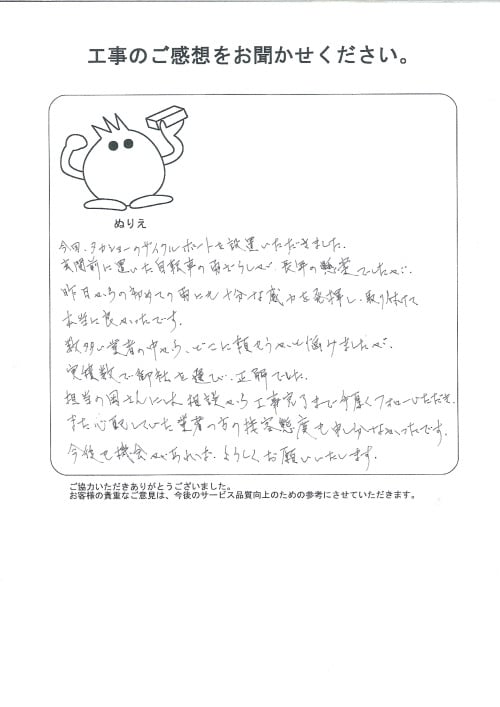 工事のご感想をお聞かせください。
ぬりえ
今回、タカショーのサイクルポートを設置いただきました。
玄関前に置いた自転車の雨ざらしが、長年の懸案でしたが、
昨日からの初めての雨にも十分な威力を発揮し、取り付けて
本当に良かったです。
数多い業者の中から、どこに頼もうかと悩みましたが、
実績数で御社を選び、正解でした。
担当の岡さんには、相談から工事完了まで手厚くフォローいただき、
また心配していた業者の方の接客態度も申し分なかったです。
今後も機会があれば、よろしくお願いいたします。
ご協力いただきありがとうございました。
お客様の貴重なご意見は、今後のサービス品質向上のための参考にさせていただきます。